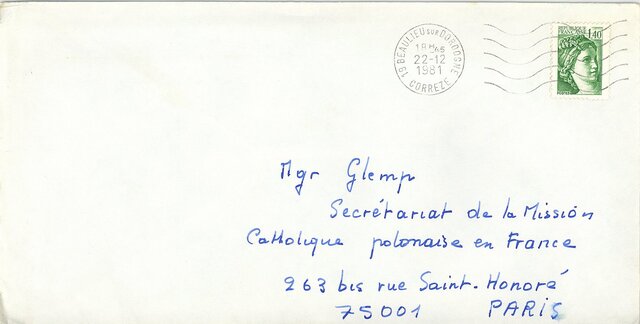 19 BEAULIEU SUR DORDOGNE
18H45
22-12
1981
CORREZE
1,40
Mgr Glemp
Secrétariat de la Mission
Catholique polonaise en France
263 bis rue Saint-Honoré
75001 PARIS